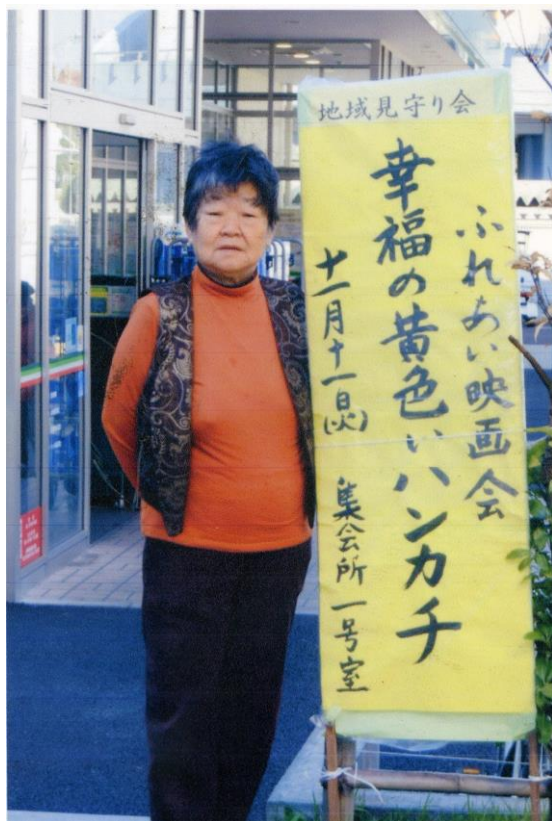 地域見守り会
ふれあい映画会
幸福の黄色いハンカチ
十一月十一日(火)
集会所一号室